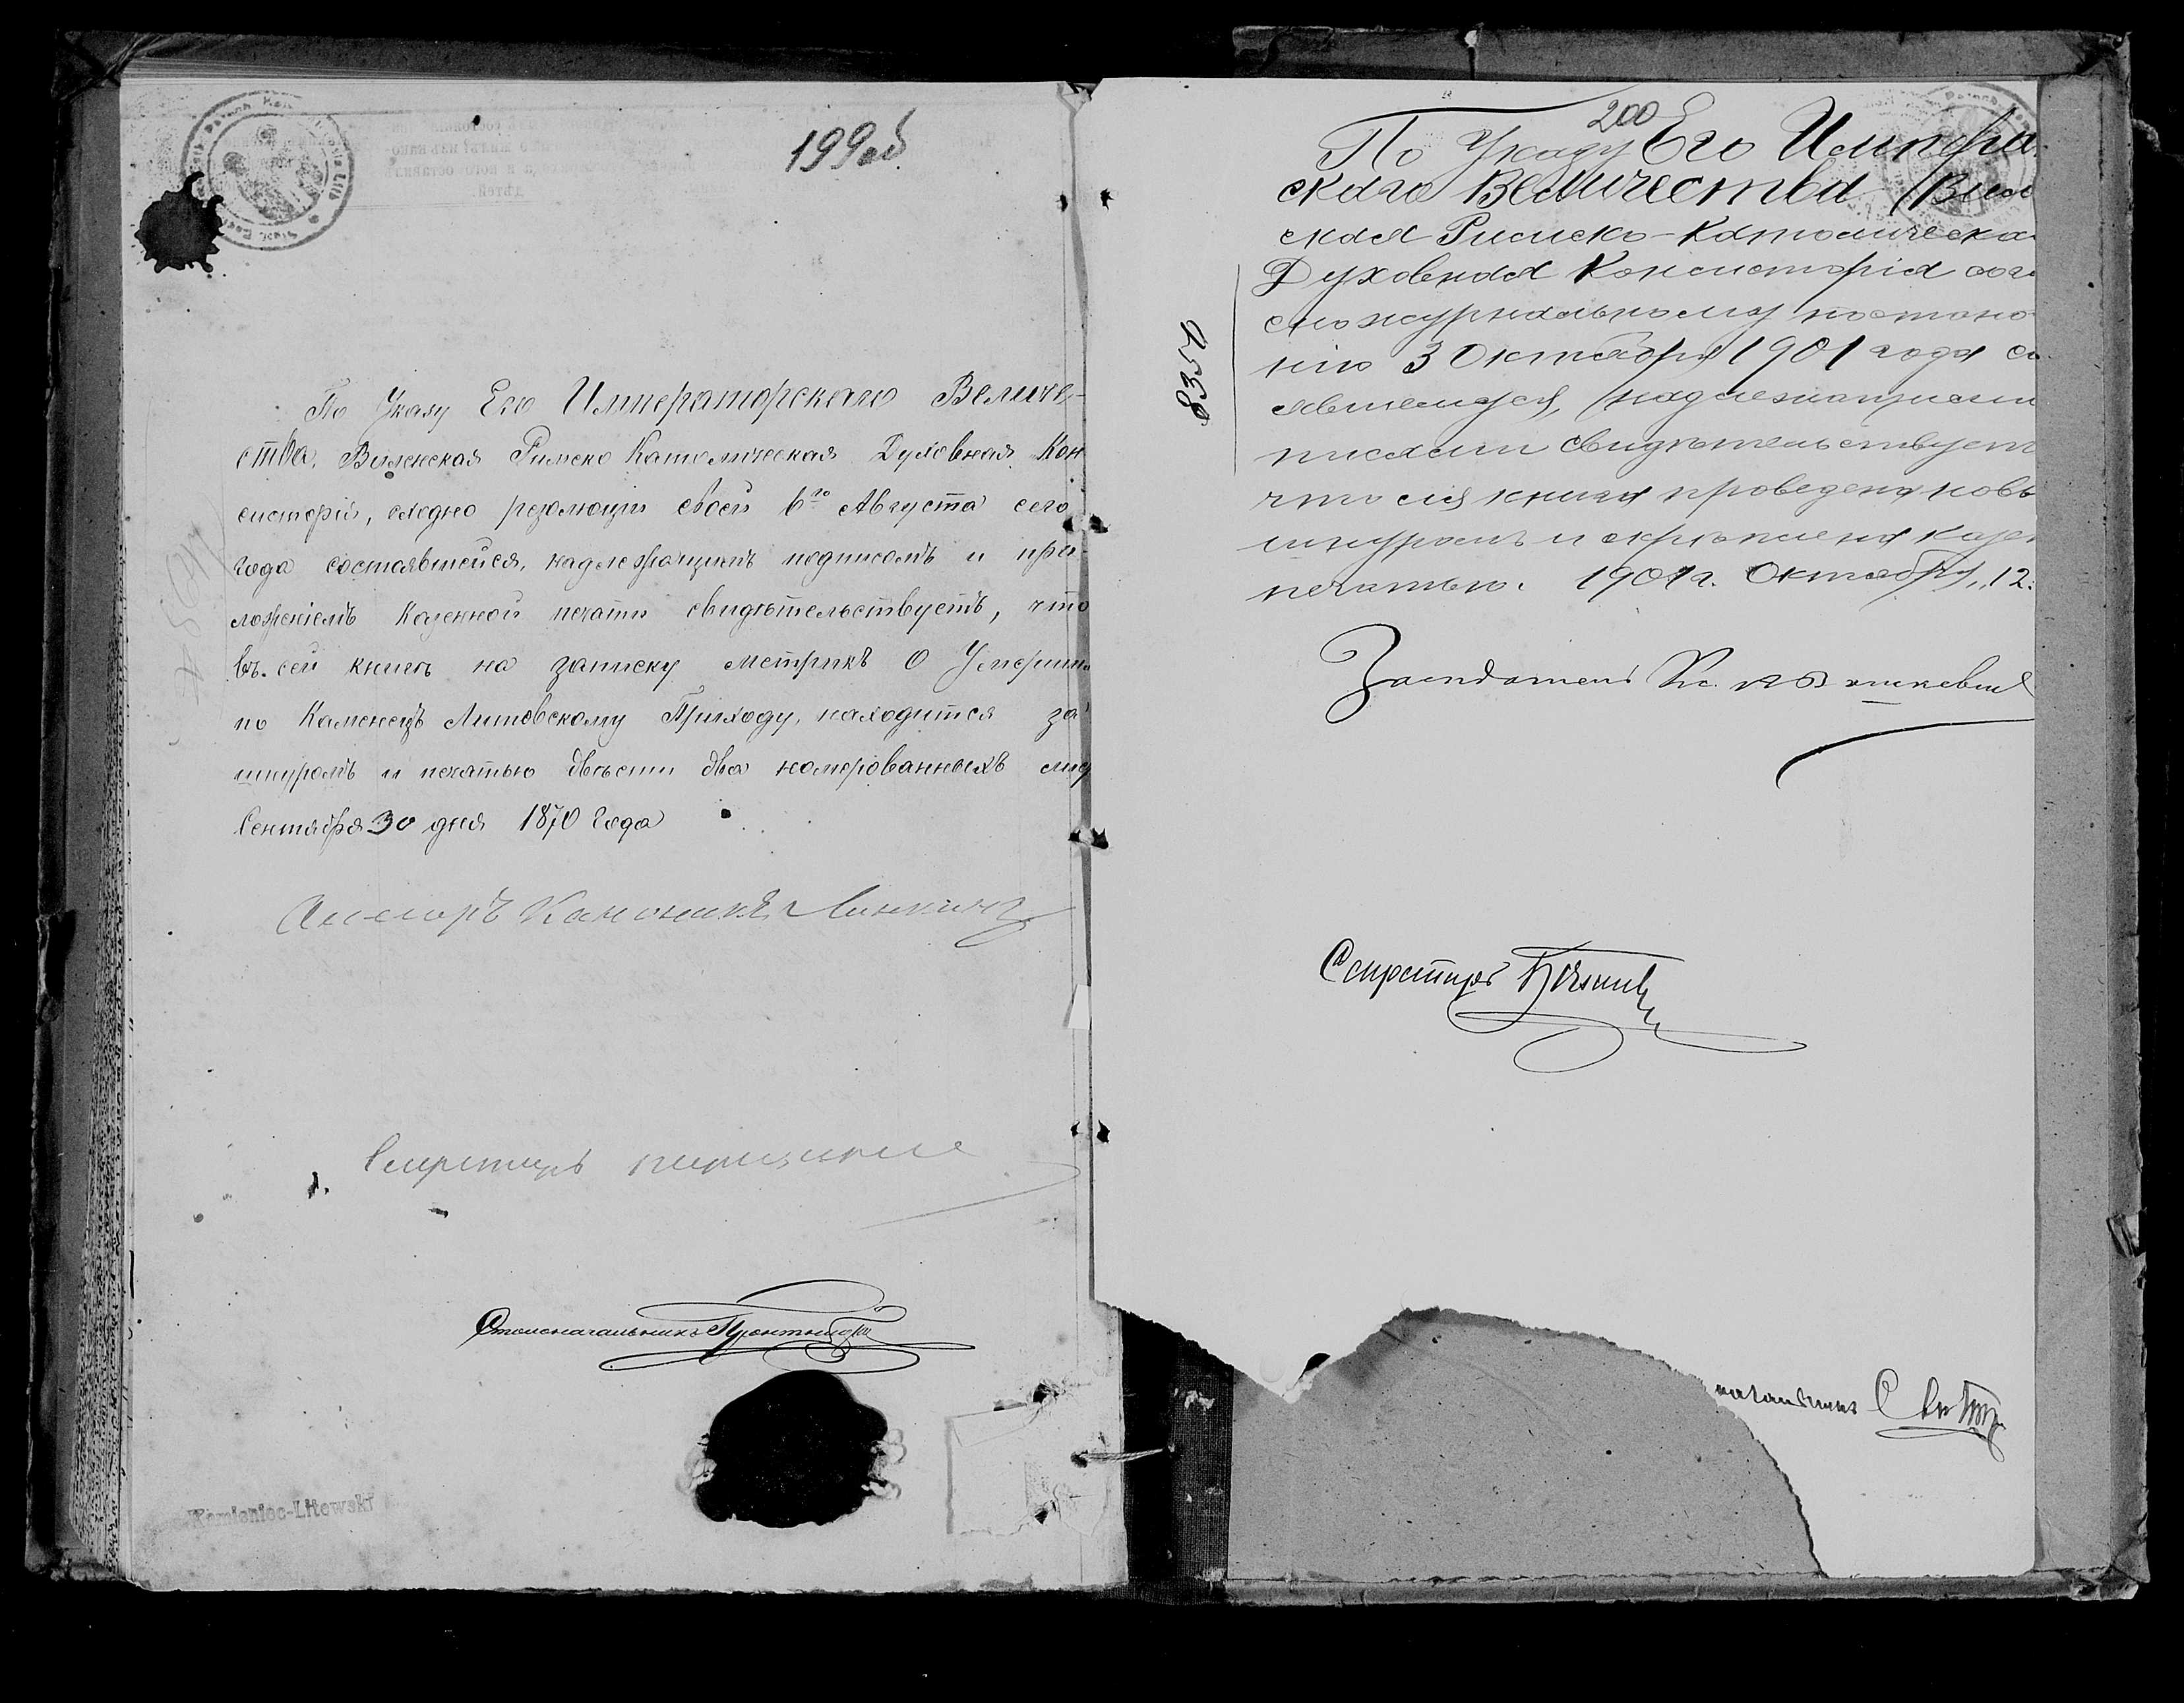 199об
По Указу Его Императорскаго Величе-
ства, Виленская Римско Католическая Духовная Кон
систорія, сходно резолюціи своей 6го Августа сего
года состоявшейся, надлежащимъ подписомъ и при-
ложеніемъ Казенной печати свидѣтельствуетъ, что
въ сей книгѣ на записку метрикъ О Умерши
по Каменецъ Литовскому Приходу, находится за
шнуромъ и печатью двѣсти два номерованныхъ
Сентября 30 дня 1870 года
Каноникъ
Секретарь
Столоначальникъ
Kamieniec-Litewski
200
По Указу Его Импера
скаго Величества Вилен
ская Римско-Католическа
Духовная Консисторія согл
сно журнальному постано
нію 3 Октября 1901 года со
явшемуся, надлежащими
писями свидѣтельствует
что сія книга проведена новы
шнуромъ и скрѣплена казен
печатью. 1901 г. Октября 12.
8350
Засѣдатель Кс.
Секретарь
начальникъ